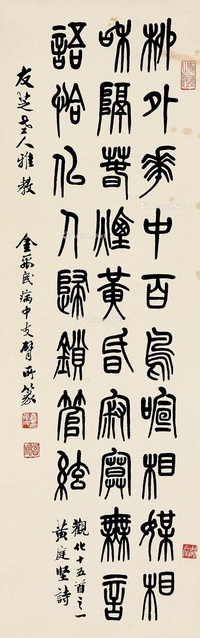 柳外華中百鳥喧相媒相
和隔春煙黃昏寂寞無言
語恰似人歸鎖管絃
觀化十五首之一
黃庭堅詩
友芝老人雅教 金禹民病中支臂所篆